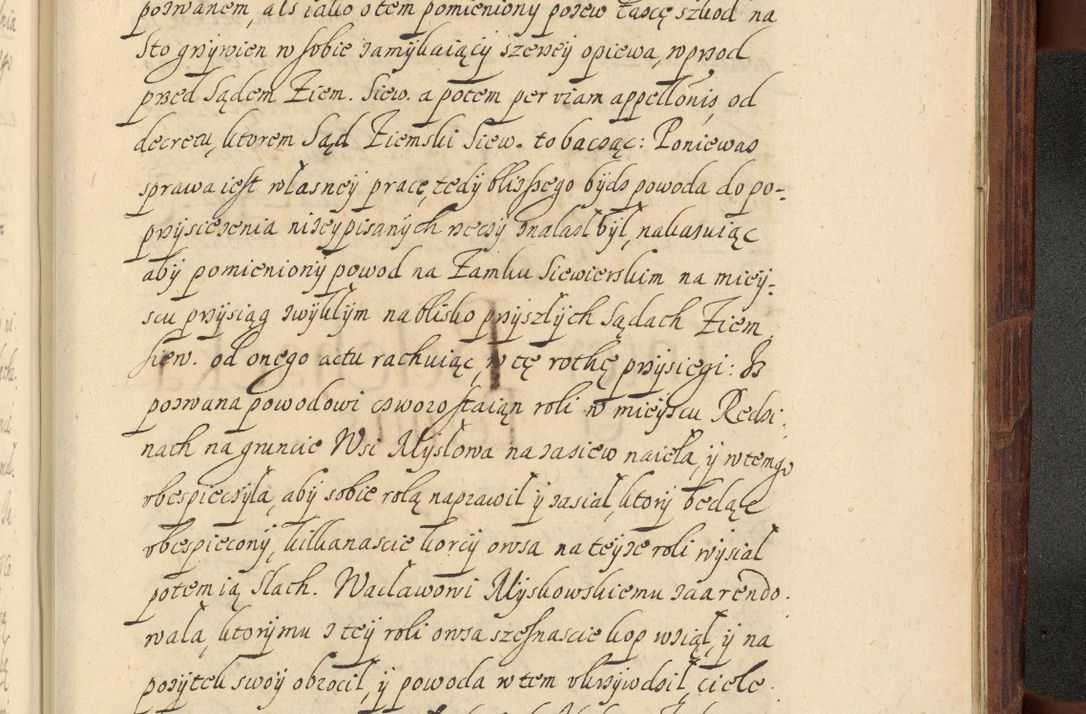 pozwanem, als iako o tem pomieniony pozew Łascę szkod na
sto grzywien w sobie zamykaiący szerzey opiewa, wprzod
przed Sądem Ziem. Siew. a potem per viam appellōnis od
decretu, ktorem Sąd Ziemski Siew. to bacząc: Poniewaz
sprawa iest własney pracę, tedy bliższego bydz powoda do po-
przysiezenia nizeypisanych rzeczy znalazł był, nakazuiąc
aby pomieniony powod na Zamku Siewierskim na miey-
scu przysiąg zwykłym na blisko przyszłych Sądach Ziem.
Siew. od onego actu rachuiąc, w tę rothę przysięgi: Iz
pozwana powodowi czworo staian roli w mieyscu Redzi-
nach na gruncie Wsi Mysłowa na zasiew naięła, y w tem go
vbespieczyła, aby sobie rolą naprawił y zasiał, ktory będąc
vbespieczony, kilkanascie korcy owsa na teyze roli wysiał
potem ią Slach. Wacławowi Myskowskiemu zaarendo-
wała, ktory mu z tey roli owsa szesnascie kop wziął, y na
pozytek swoy obrocił, y powoda w tem vkrzywdził, ciele